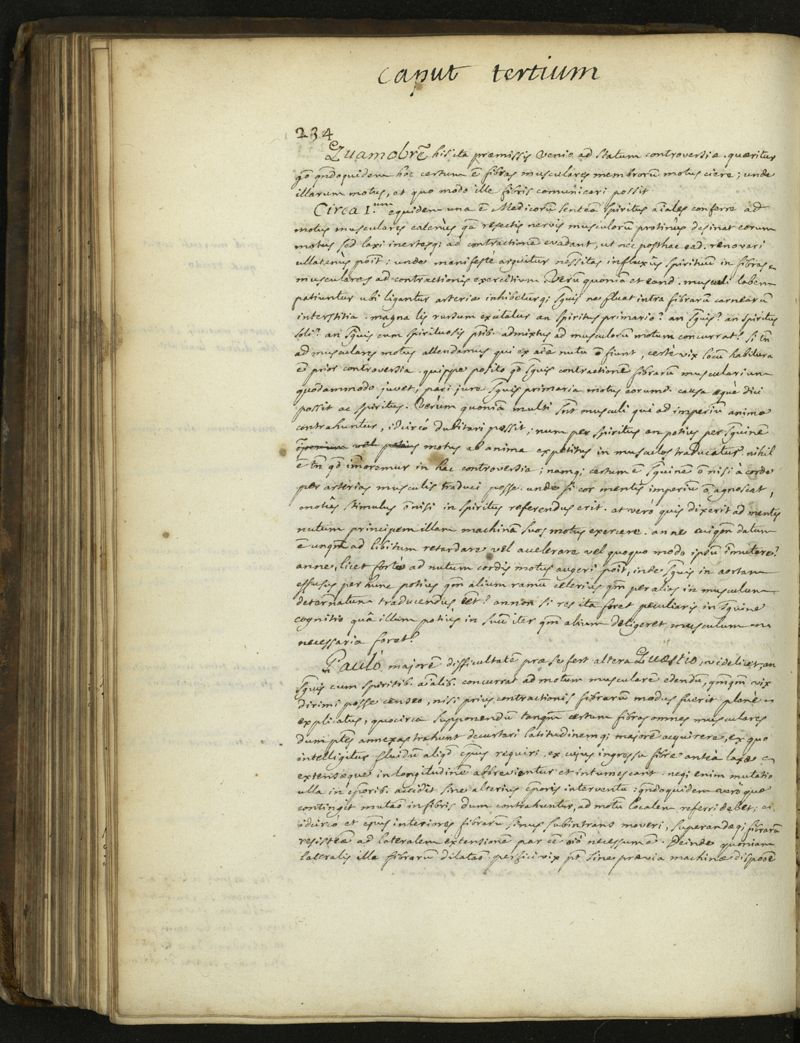 caput tertium
234
Quamobrē his ita præmissis venio ad statum controversiæ. quæritur
qd̄ qn̄doquidem hoc certum ē fibras musculares membrorū motus ciere; unde
illarum motus, et quo modo ille fibris comunicari possit
Circa I.um equidem una ē Medicorū sentēa spiritus aīales conferre ad
motus musculares eatenus qā resectis nervis musculorū protinus desinat eorum
motus sed laxi inertesq; ad contractionē evadant, ut nec posthac ead. renovari
ullatenus possit; unde manifeste arguitur necessitas influxus spirituū in fibras
musculares ad contractionis exercitium. Verū quoniā et eand. musculi labem
patiuntur ubi ligantur arteriæ inhibeturq; sguis ne fluat intra fibrarū carnearū
interstitia. magna lis rursum excitatur an spiritus primario? an sguis? an spiritus
soli? an sguis cum spirituosis ptib. admixtus ad musculorū motum concurrat? si tn̄
ad musculares motus attendamus qui ex aīæ nutu ō fiunt, certe vix locū habitura
ē prior controversia. quippe posito qd̄ sguis contractionē fibrarū muscularium
quodammodo juvet; pari jure sguis primaria motus eorumd. causa æquè dici
possit ac spiritus. Verùm quoniā multi sn̄t musculi qui ad imperiū animæ
contrahuntur, idcirco dubitari possit; num per spiritus an potius per sguinē
motus ab anima expetitus in musculos traducatur. nihil
ē tn̄ qd̄ imoremur in hac controversia; namq; certum ē sguinē ō nisi à corde
per arterias musculis traduci posse. unde si cor mentis imperiū ō agnoscat,
motus stimulus ō nisi in spiritus referendus erit. at verò quis dixerit ad mentis
nutum principem illam machinā suos motus exercere. an ne cuiqm̄ datum
ē unqm̄ ad libitum retardare vel accelerare vel quoquo modo ipsū īmutare?
anne, licet fortè ad nutum cordis motus augeri poīt, inde sguis in aortam
effusus per hunc potius qm̄ alium ramū celerius qm̄ per alios in musculum
determ̄natum traducendus eēt? annon si res ita foret peculiaris in sguine
cognitio quā illum potius in suū iter qm̄ alium deligeret musculum
necessaria foret?
Paulò majorē difficultatē præ se fert altera Quæstio, videlicet, an
sguis cum spiritib. aīalib. concurrat ad motum musculare edendū, qm̄qm̄ vix
dirimi posse censeo, nisi prius contractionis fibrarū modus fuerit planè
explicatus, quocirca supponendū tanqm̄ certum fibras omnes musculares
dum ptes annexas trahunt decurtari latitudinemq; majorē acquirere, ex quo
intelligitur fluidū aliqd̄ cpus requiri, ex cujus ingressu fibræ anteà laxæ
extensæque in longitudinē abbrevientur et intumescant. neq; enim mutatio
ulla in cporib. accidit sine alterius cporis interventu: qn̄doquidem verò quæ
contingit mutāo in fibris dum contrahuntur, ad motū localem referri debet;
idcirco et cpus interiores fibrarū sinus subintrans moveri, superandaq; fibrarū
resistēa ad lateralem extensionē par eē oīo necessum ē. Deinde quoniam
lateralis illa fibrarū dilatāo perfici vix pt̄ sine prævia machinæ disposōe